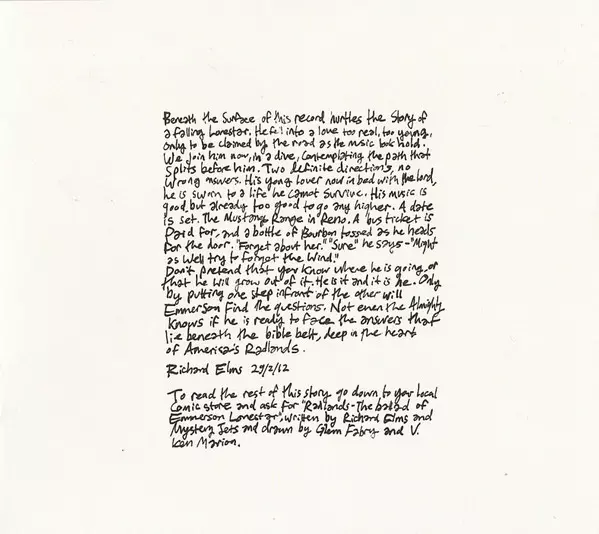 Beneath the Surface of this record hurtles the Story of
a falling Lonestar. He fell into a love too real, too young,
only to be claimed by the road as the music took hold.
We join him now, in a dive, Contemplating the path that
Splits before him. Two definite directions, no
wrong answers. His young lover now in bed with the lord,
he is sworn to a life he cannot Survive. His music is
good, but already too good to go any higher. A date
is set. The Mustang Range in Reno. A bus ticket is
Paid for, and a bottle of Bourbon tossed as he heads
for the door. "Forget about her." "Sure" he says - "Might
as well try to forget the Wind."
Don't pretend that you know where he is going, or
that he will grow out of it. He is it and it is he. Only
by putting one step infront of the other will
Emmerson Find the questions. Not even the Almighty
knows if he is ready to face the answers that
lie beneath the bible belt, deep in the heart
of America's Radlands.
Richard Elms 29/2/12
To read the rest of this story go down to your local
Comic store and ask for "Radlands - The ballad of
Emmerson Lonestar", written by Richard Elms and
Mystery Jets and drawn by Glenn Fabry and V.
Ken Marion.